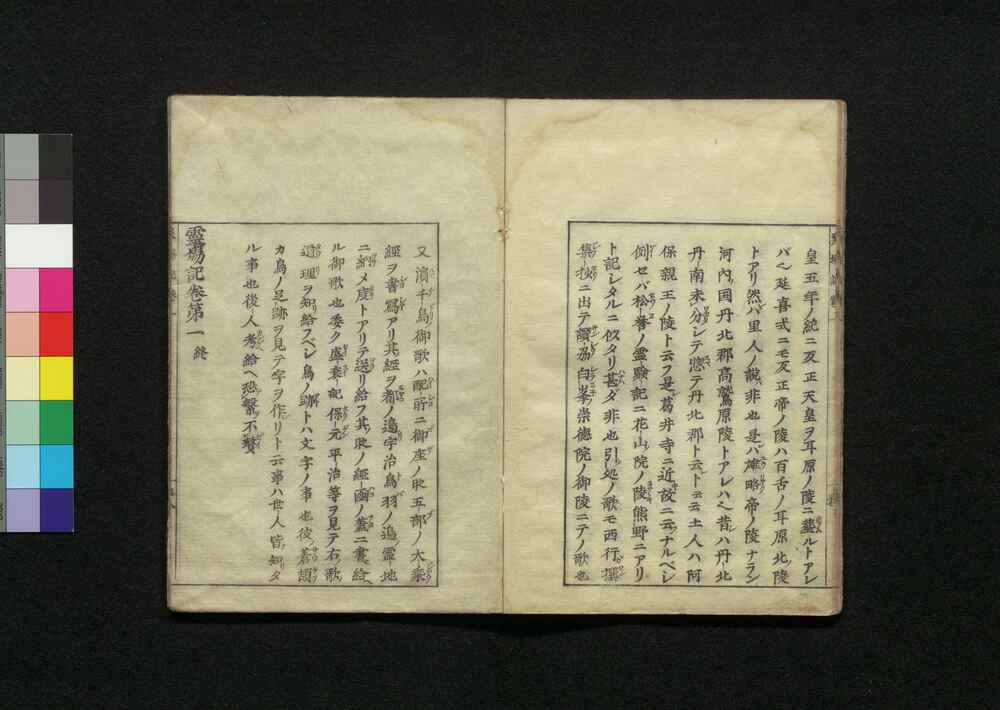 皇五年ノ紀ニ反正天皇ヲ耳原ノ陵ニ葬ルトアレ
バ也延喜式ニモ反正帝ノ陵ハ百舌ノ耳原北ノ陵
トアリ然バ里人ノ説非也是ハ雄略帝ノ陵ナラン
河内国丹北郡高鷲原陵トアレハ也昔ハ丹北
丹南未分シテ惣テ丹北郡ト云ト云云土人ハ阿
保親王ノ陵ト云フ是葛井寺ニ近故ニ云ナルベシ
例セバ松誉ノ霊験記ニ花山院ノ陵熊野ニアリ
ト記レタルニ似タリ甚ダ非也引処ノ歌モ西行撰
集抄ニ出テ讃州白峯崇徳院ノ御陵ニテノ歌也
又濱千鳥御歌ハ配所ニ御座ノ時五部ノ大乗
經ヲ書寫アリ其經ヲ都ノ邉宇治鳥羽ノ邉霊地
ニ納メ度トアリテ送リ給フ其時ノ經函ノ蓋ニ書給
ル御歌也委ク盛衰記保元平治等ヲ見テ右ノ歌
道理ヲ知給フベシ鳥ノ跡トハ文字ノ事也彼ノ蒼頡
カ鳥ノ足跡ヲ見テ字ヲ作リト云事ハ世人皆知タ
ル事也後人考給ヘ恐繁不贅
靈場記卷第一 終